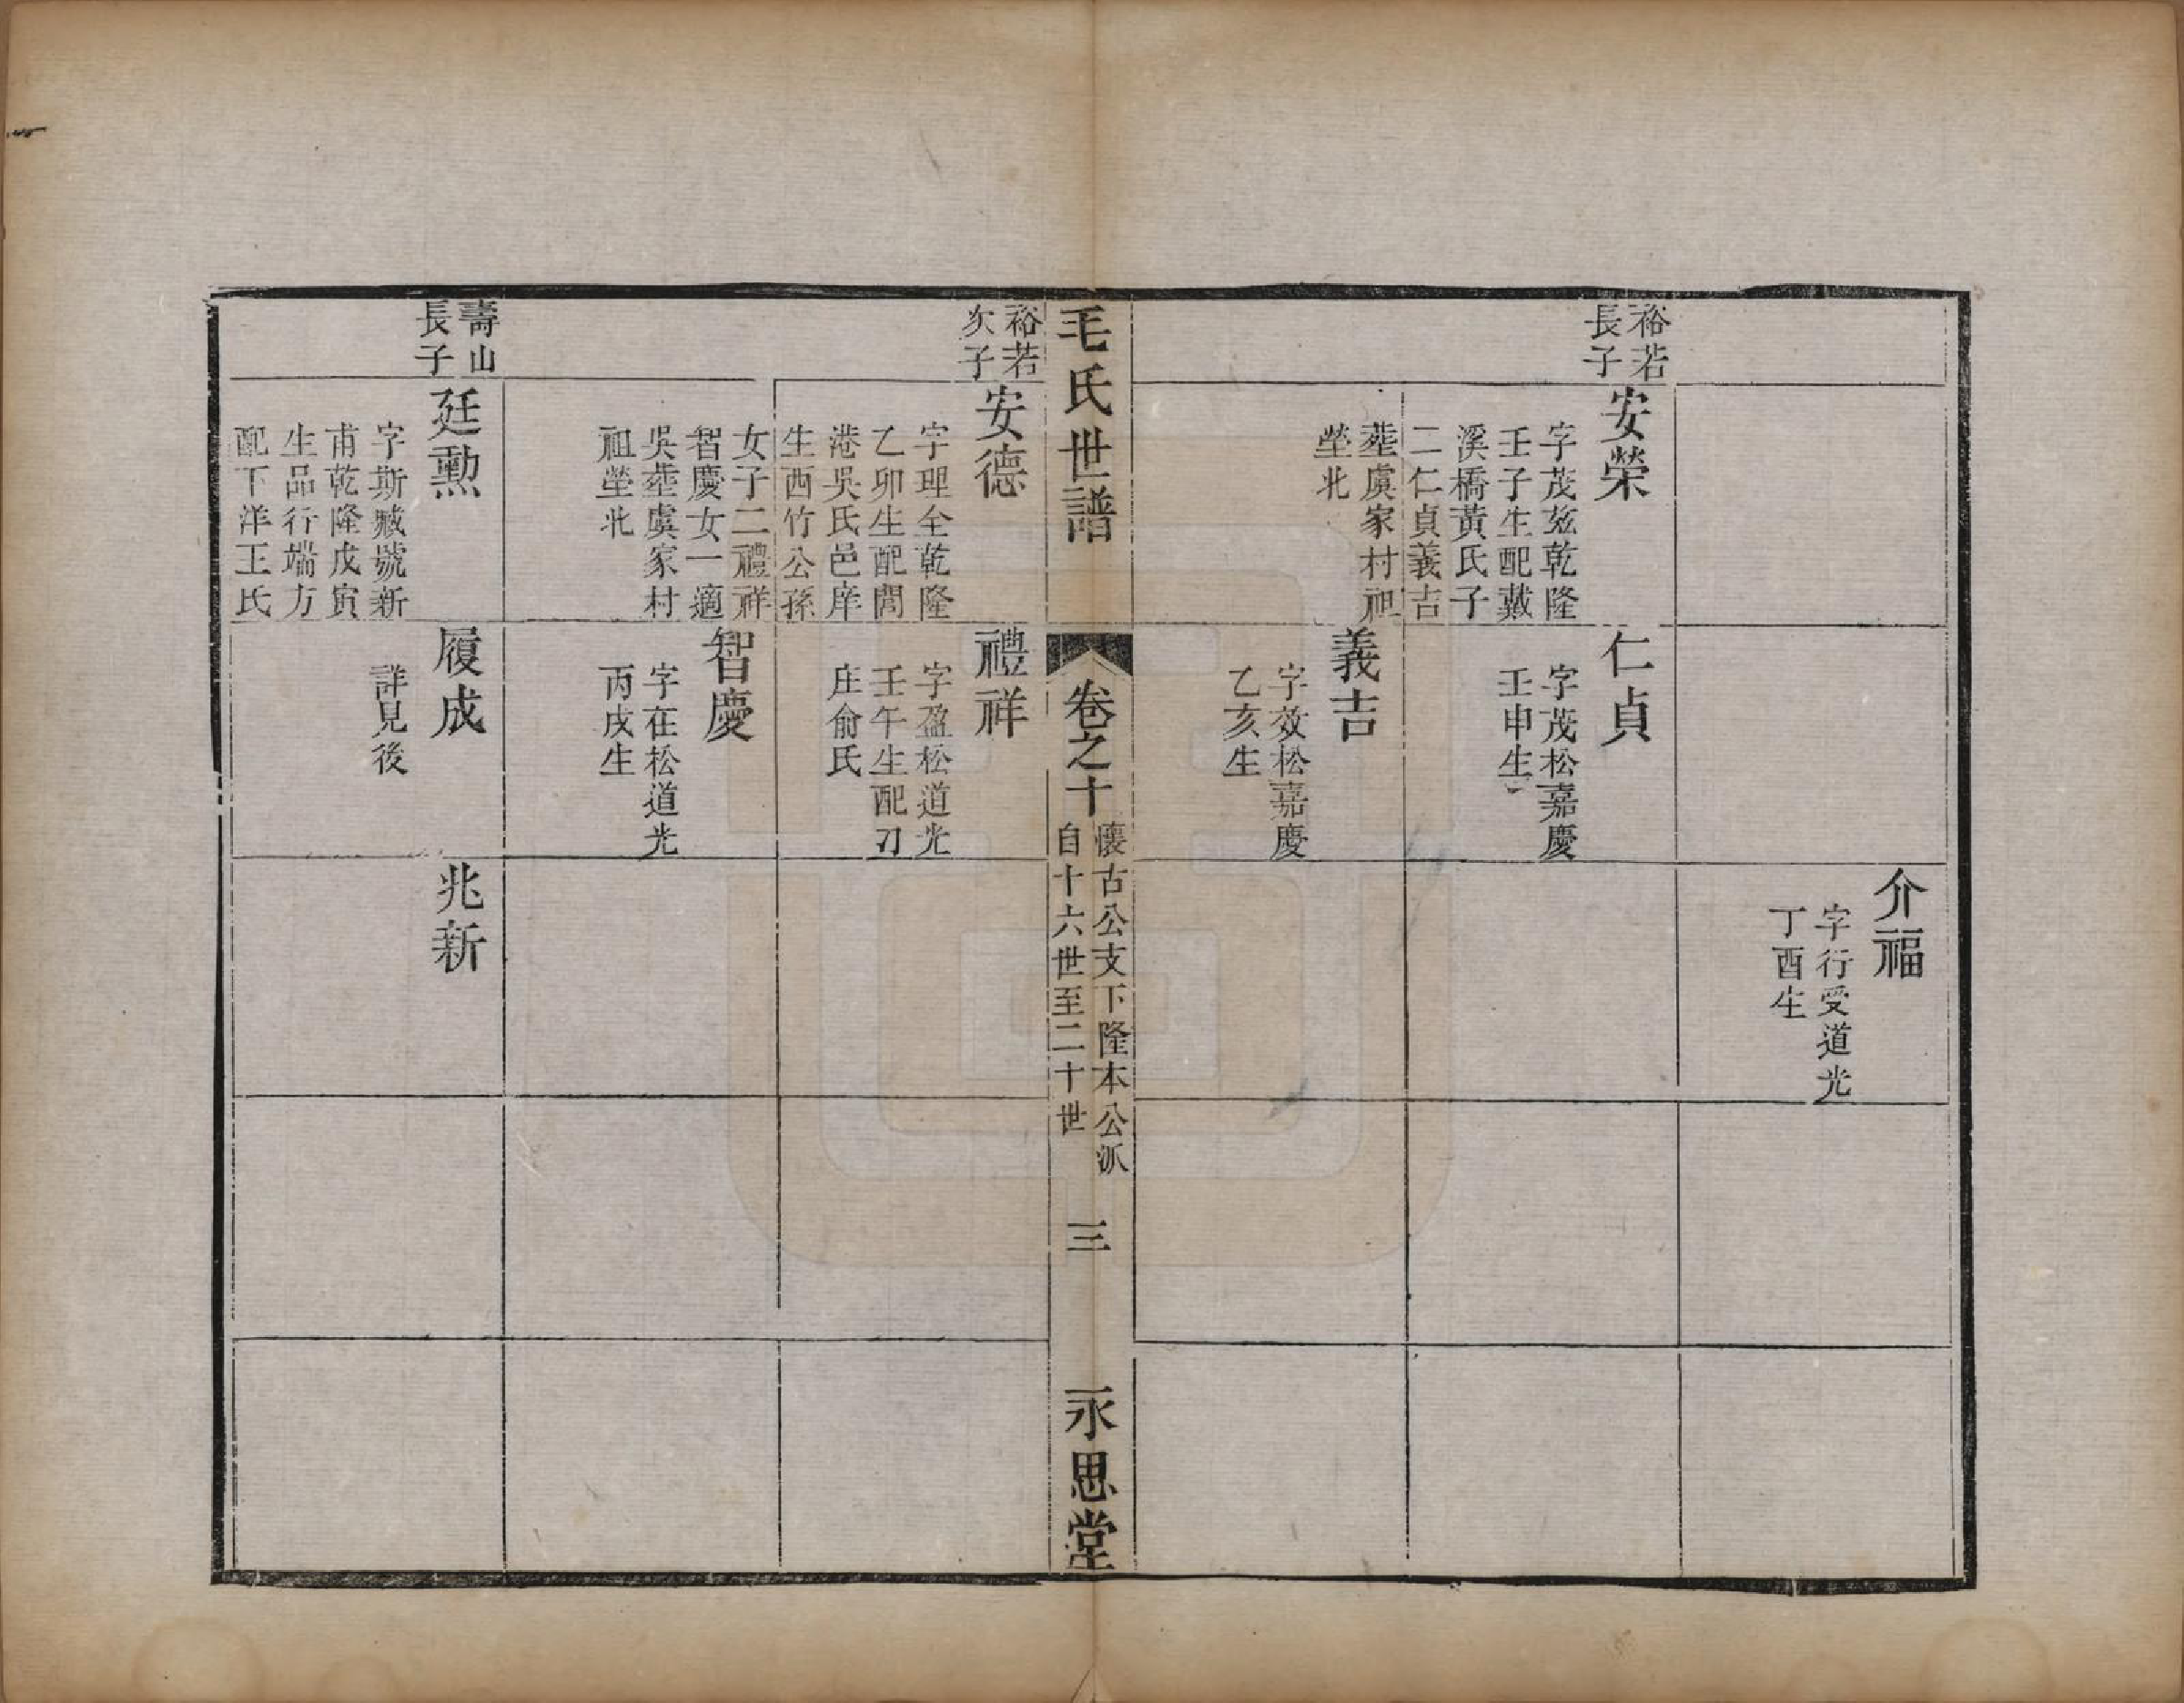 介福
字行受道光
丁酉生
裕若
長子
安榮
字茂茲乾隆
壬子生配戴
溪橋黃氏子
二仁貞義吉
塟虞家村祖
塋北
仁貞
字茂松嘉慶
壬申生
義吉
字效松嘉慶
乙亥生
毛氏世譜
卷之十
懷古公支下隆本公派
自十六世至二十世
三
永思堂
裕若
次子
安德
字理全乾隆
乙卯生配閭
港吳氏邑庠
生西竹公孫
女子二禮祥
智慶女一適
吳塟虞家村
祖塋北
禮祥
字盈松道光
壬午生配刀
庄俞氏
智慶
字在松道光
丙戌生
壽山
長子
廷勲
字斯臧號新
甫乾隆戊寅
生品行端方
配下洋王氏
履成
詳見後
兆新